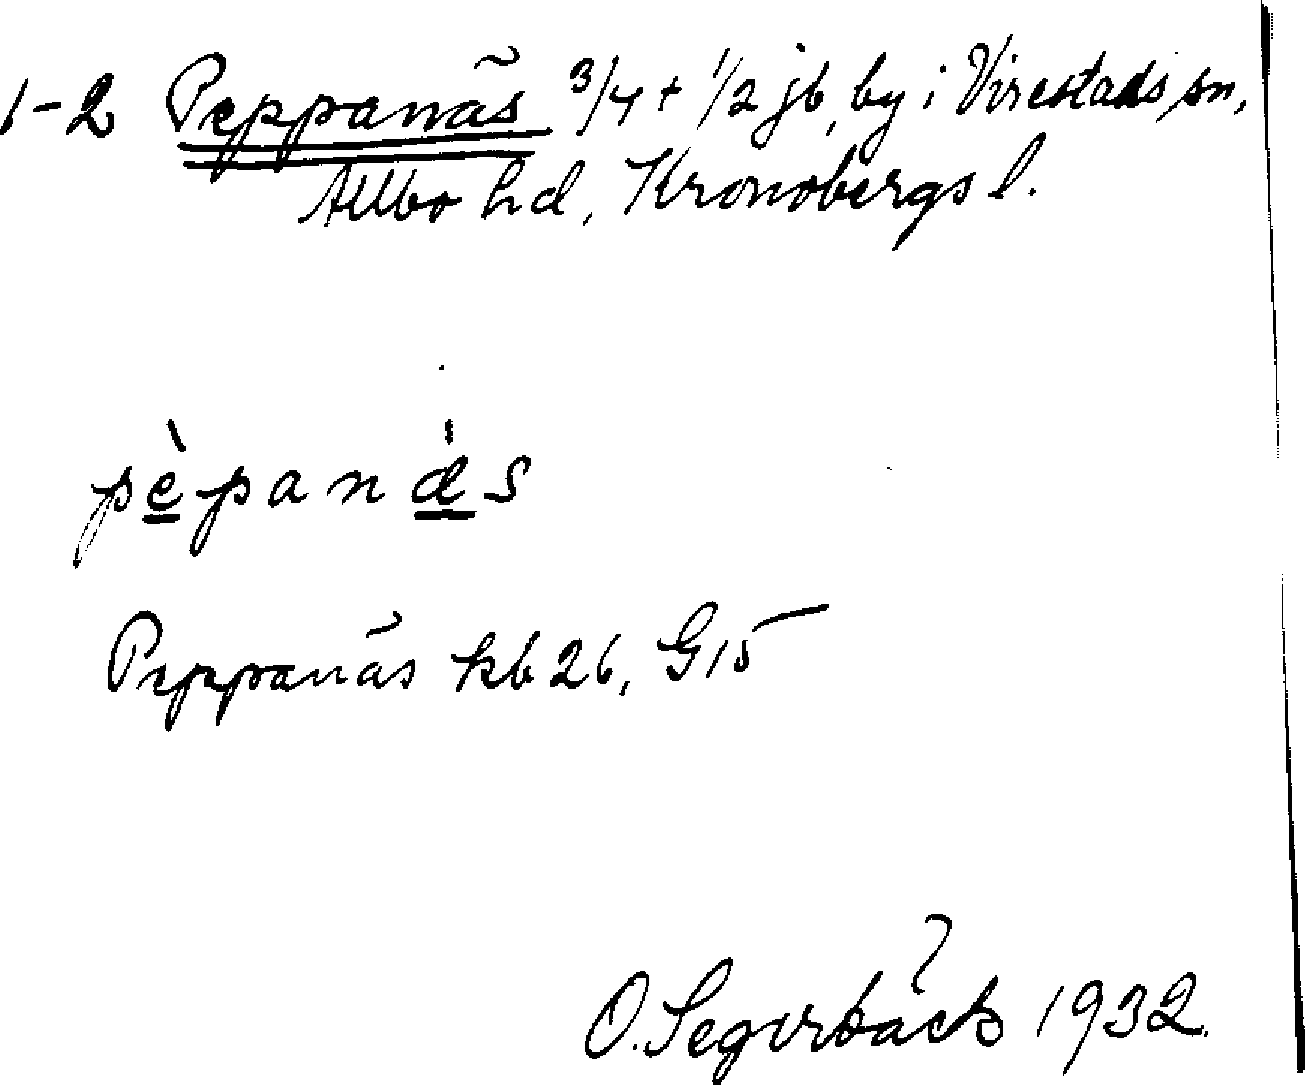 1-2 Peppanäs 3/4 + 1/2 jb, by i Virestads sn,
Allbo hd, Kronobergs l.
pèpanás
Peppanäs kb 26, G15
O. Segerbäck 1932.